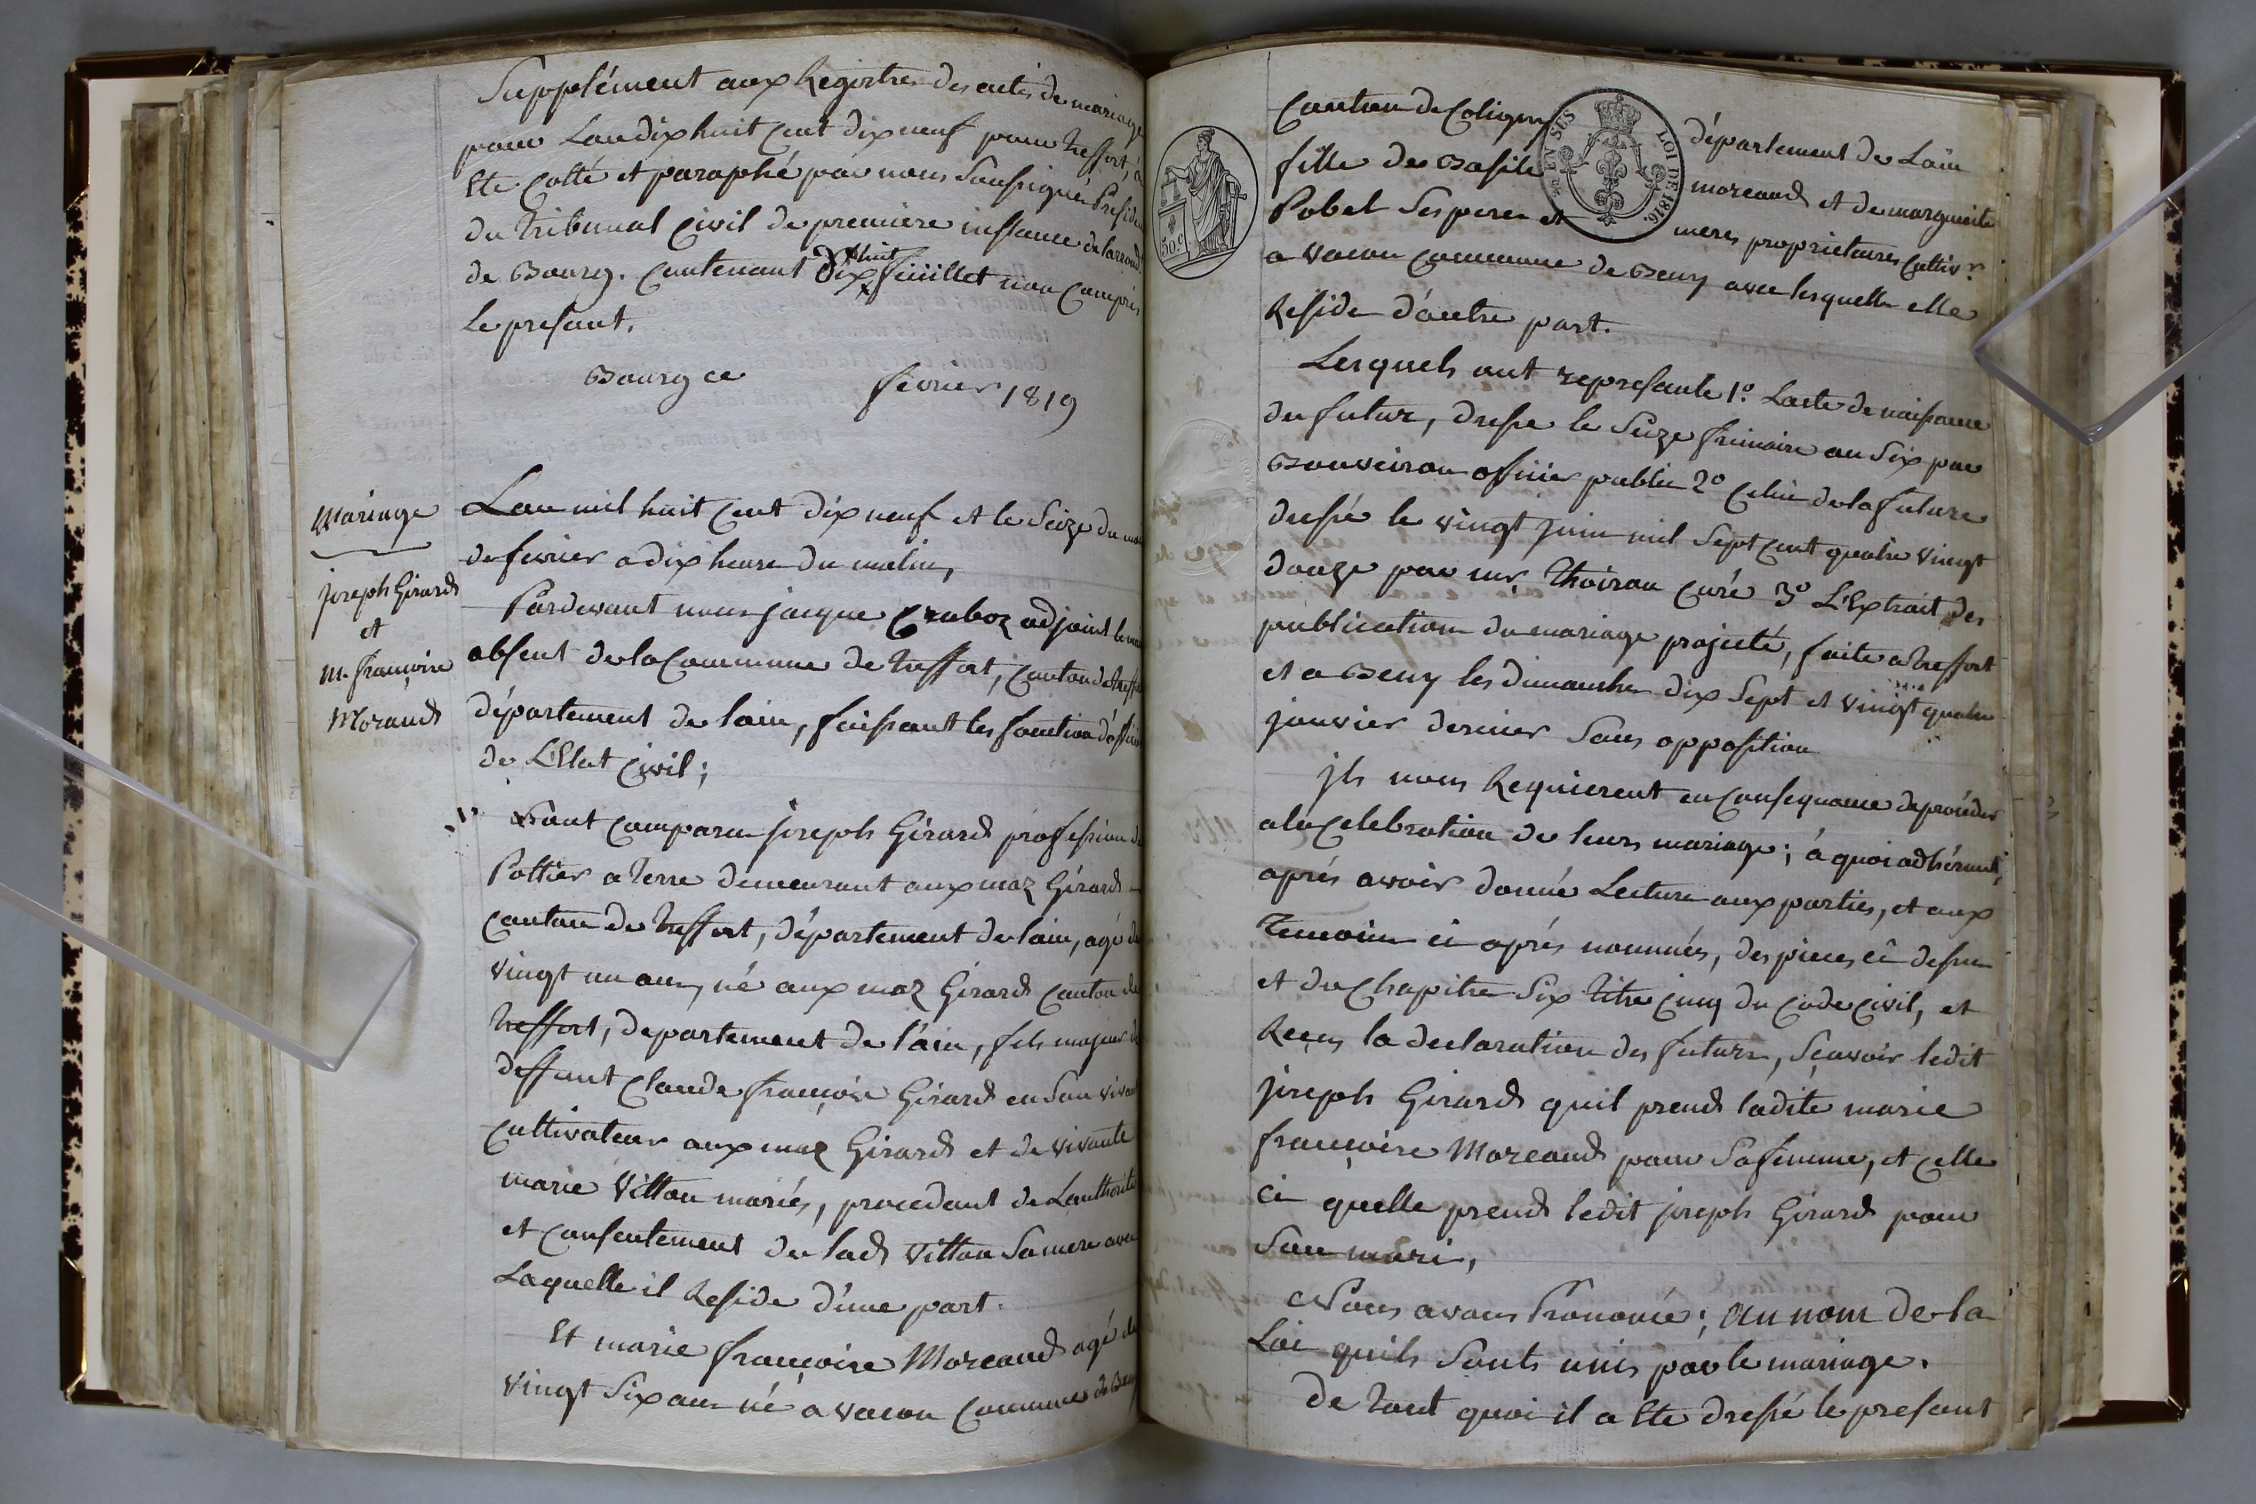 Supplément aux Registres des actes de mariage
pour Lan dix huit Cent dix neuf pour treffort, a
Ete Cotté et paraphé par nous Soussigné Preside
du tribunal Civil de premiere instance de larrond
de Bourg. Contenant dix huit feüillet non Compris
Le presant.
Bourg ce fevrier 1819
Mariage
Joseph Girard
et
M. françoise
Moraud
Lan mil huit Cent dix neuf et le Seize du moi
de fevrier a dix heure du matin,
Pardevant nous jacque Craboz adjoint le maire
absent de la Commune de treffort, Canton de treffo
département de lain, faissant les fonction d'officie
de L'Etat Civil;
Sont Comparu joseph Girard profession de
Pottier a terre demeurant aux maz Girard
Canton de treffort, département de lain, agé de
vingt un ans, né aux maz Girard Canton de
treffort, departement de l'ain, fils majeur de
deffunt Claude françois Girard en Son vivant
Cultivateur aux maz Girard et de vivante
marie Vitton mariés, procedant de Lauthorite
et Consentement de lad. Vitton Sa mere avec
Laquelle il Reside d'une part.
Et marie françoise Moreaud agé de
vingt Six ans né a vacon Commune de Beny
Canton de Coligny département de Lain
fille de Basile moreaud et de marguerite
Pobel Ses pere et meres proprietaires Cultivr.
a vacon Commune de Beny avec lesquelle elle
Reside d'autre part.
LOI DE 1816.
50 c
Lesquels ont represanté 1.º Lacte de naissance
du futur, dressé le Seize frimaire an Six par
Bouveiron officier public 2º Celui de la future
dressé le vingt juin mil Sept Cent quatre vingt
douze par mr. Thoiron Curé 3º L'Extrait des
publication du mariage projeté, faite a treffort
et a Beny les dimanche dix Sept et vingt quatre
janvier dernier Sans opposition
jls nous Requierent en Consequance de proceder
a la Celebration de leurs mariage; à quoi adhérant,
aprés avoir donné Lecture aux parties, et aux
temoins ci aprés nommés, des pieces ci dessus
et du Chapitre Six titre Cinq du Code Civil, et
Reçus la declaration des futurs, Sçavoir ledit
joseph Girard quil prend ladite marie
françoise Moreaud pour Sa femme, et Celle
ci quelle prend ledit joseph Girard pour
Son mari,
Nous avons Prononcé; au nom de la
Loi quils Sont unis par le mariage.
de tout quoi il a Ete dressé le presant